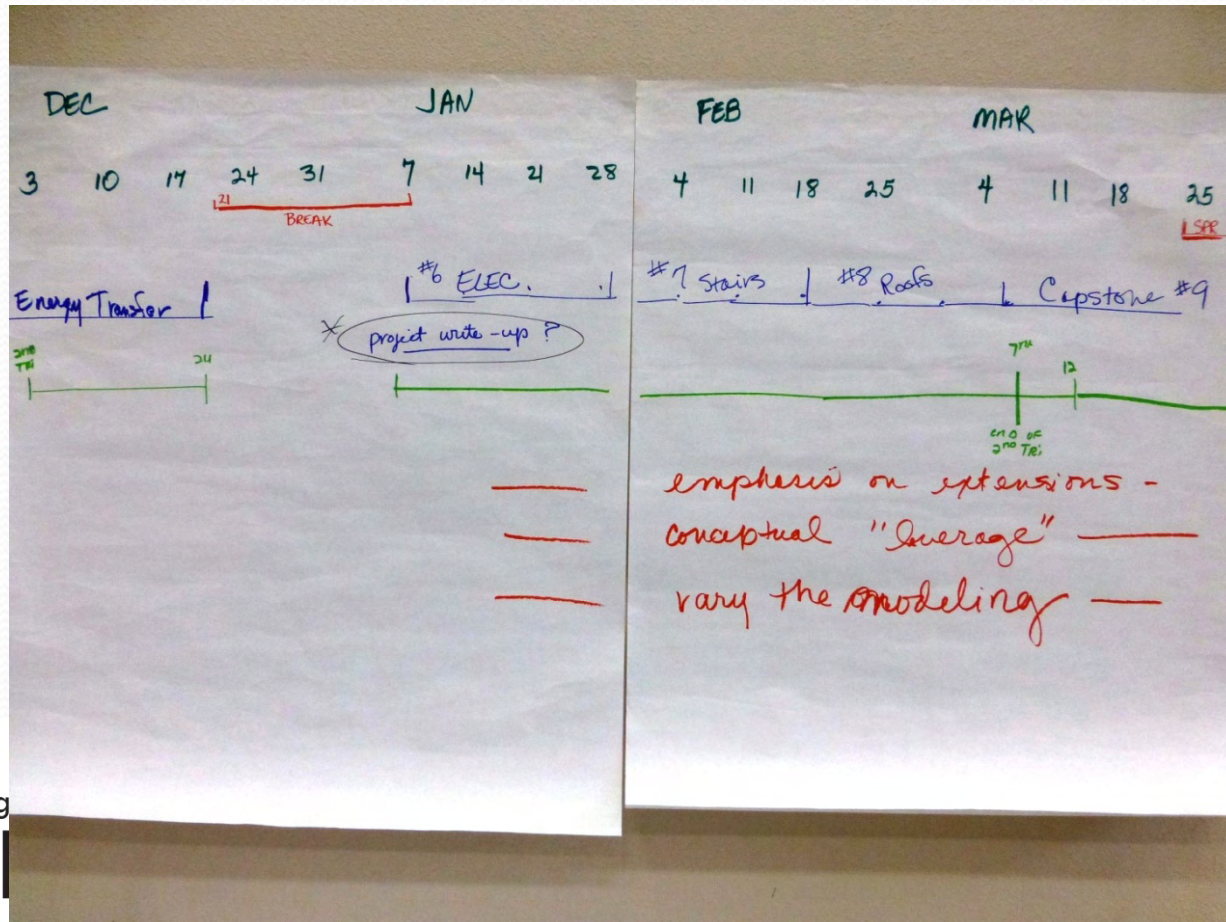 DEC JAN
3 10 17 24 31 7 14 21 28
21
BREAK
#6 ELEC.
Energy Transfer
project write-up ?
2nd
TRI
24
FEB MAR
4 11 18 25 4 11 18 25
SPR
#7 Stairs #8 Roofs Capstone #9
7TH
12
end of
2nd TRi
emphasis on extensions -
conceptual "leverage"
vary the modeling